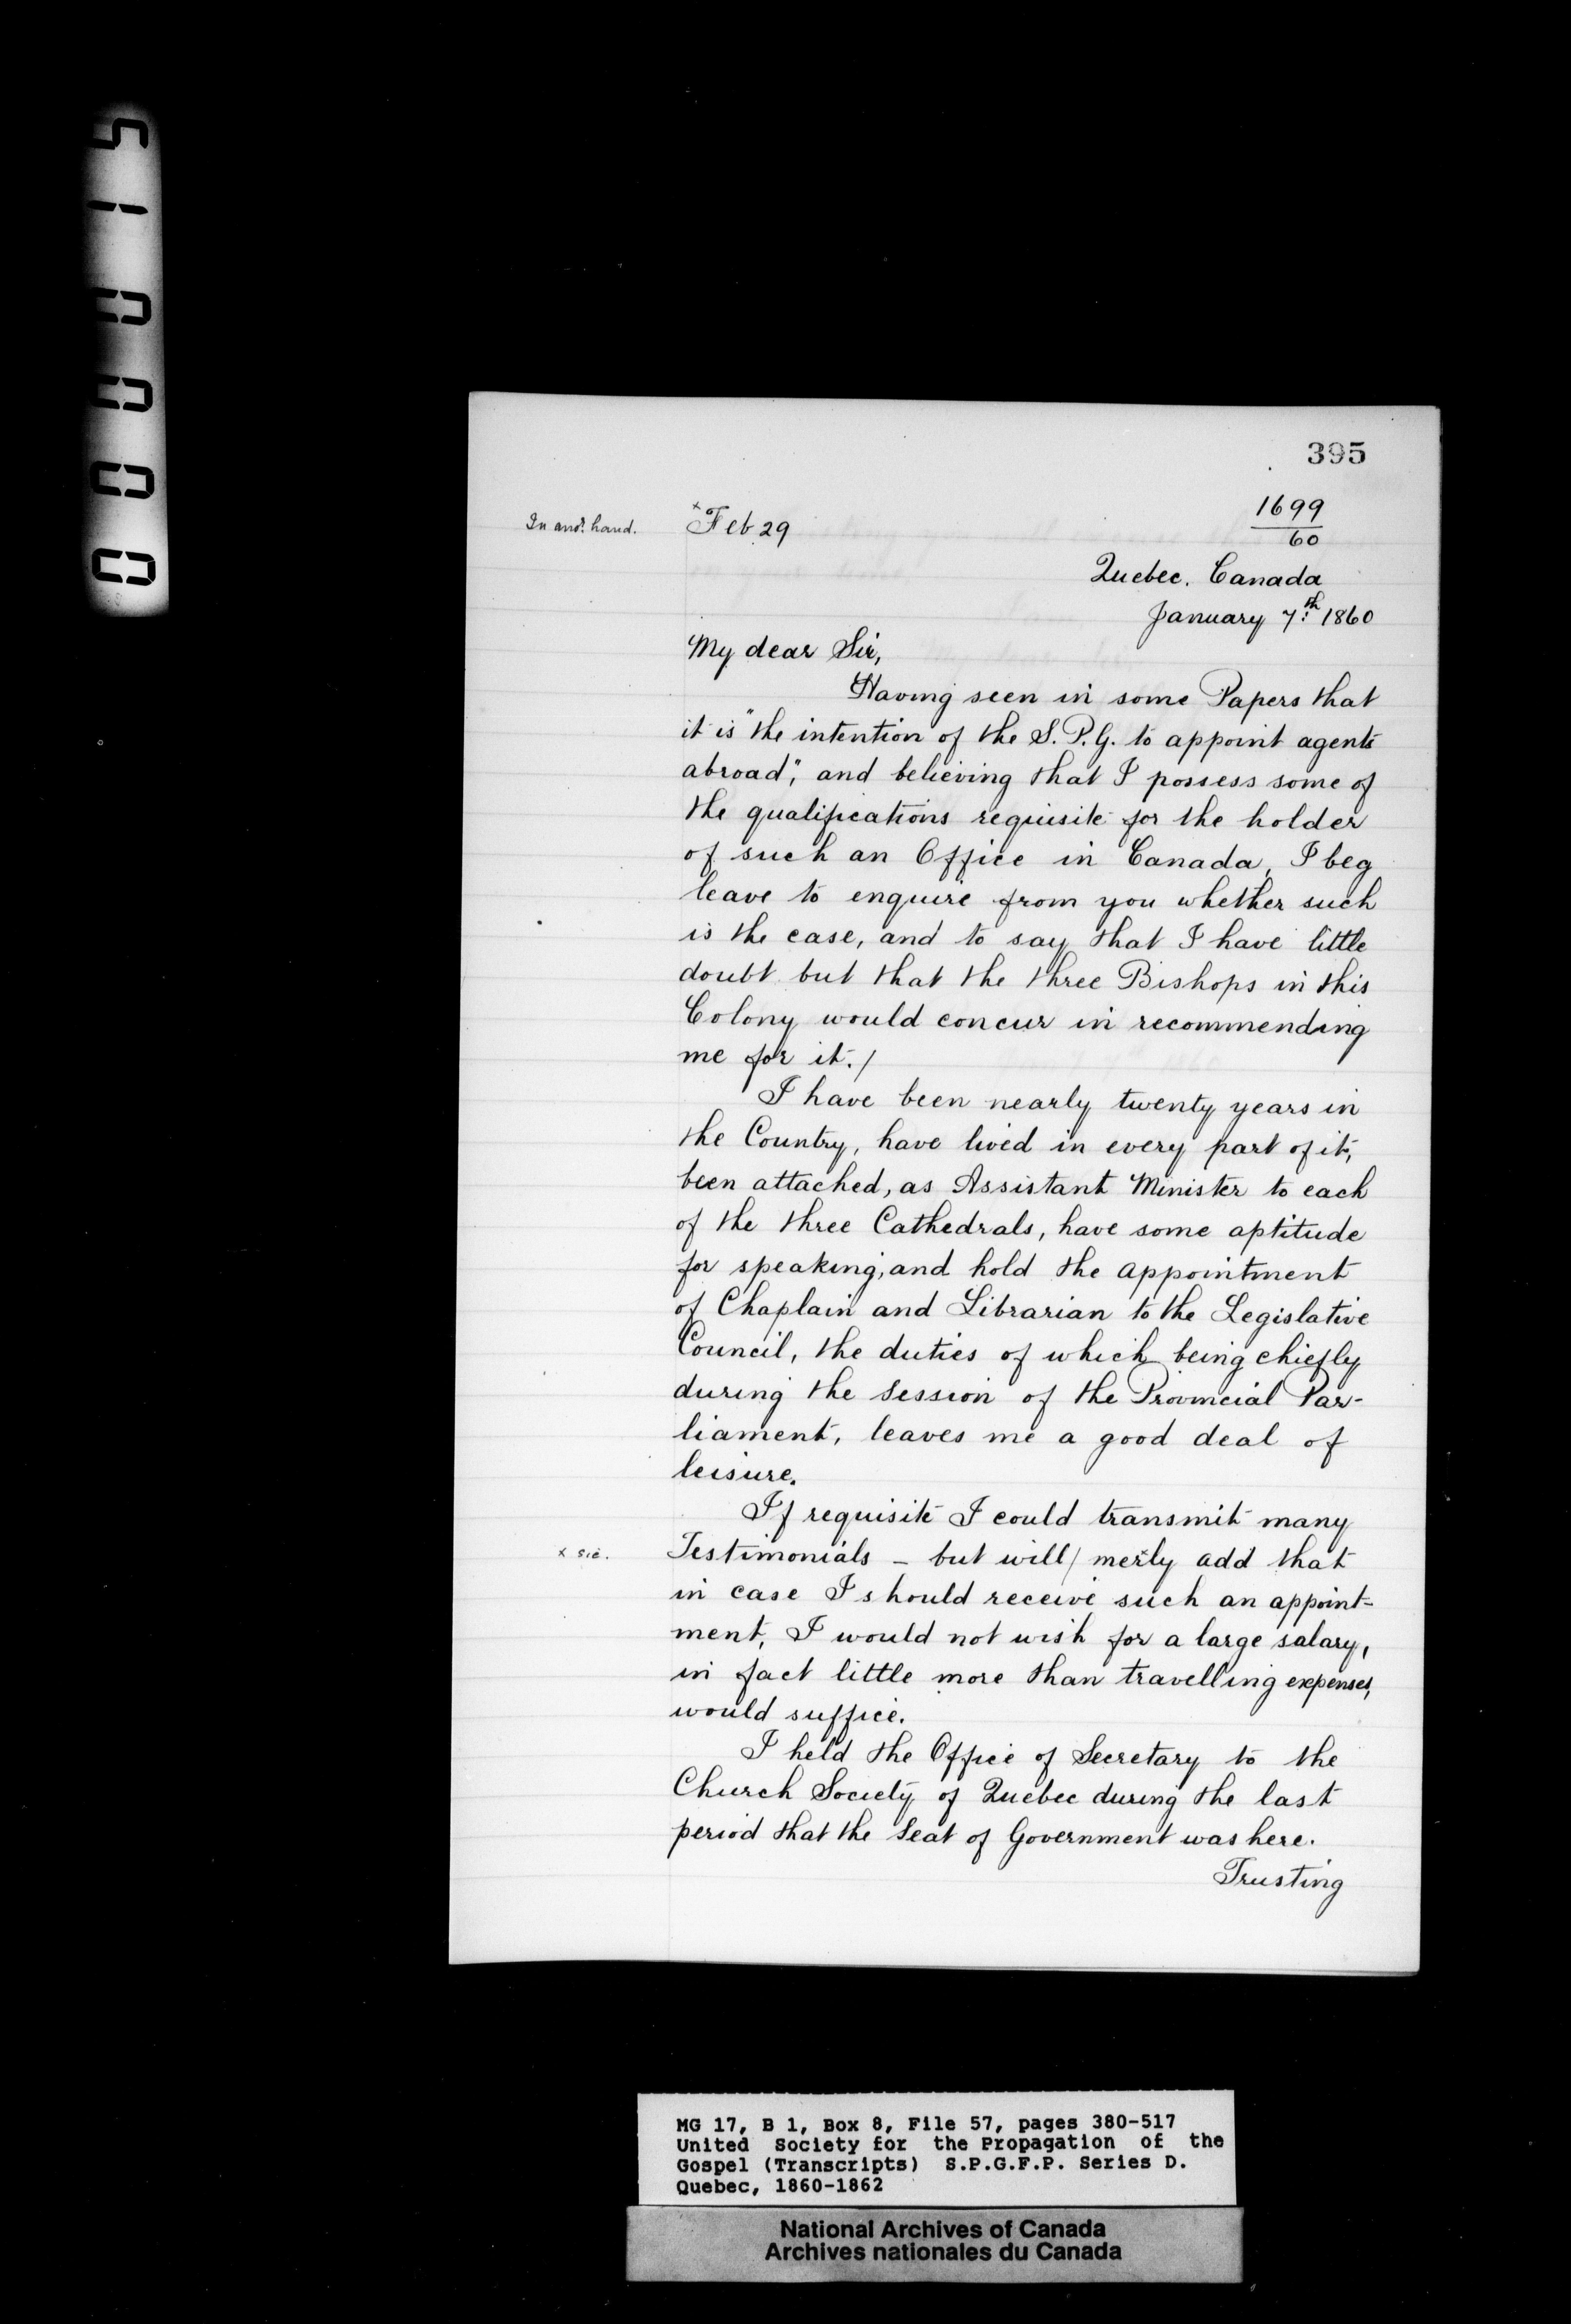 000015
395
1699
60
In anor. hand.
x Feb 29
Quebec. Canada
January 7th. 1860
My dear Sir,
Having seen in some Papers that
it is "the intention of the S.P.G. to appoint agents
abroad", and believing that I possess some of
the qualifications requisite for the holder
of such an Office in Canada, I beg
leave to enquire from you whether such
is the case, and to say that I have little
doubt but that the three Bishops in this
Colony would concur in recommending
me for it./
I have been nearly twenty years in
the Country, have lived in every part of it,
been attached, as Assistant Minister to each
of the three Cathedrals, have some aptitude
for speaking, and hold the appointment
of Chaplain and Librarian to the Legislative
Council, the duties of which being chiefly
during the Session of the Provincial Par-
liament, leaves me a good deal of
leisure.
If requisite I could transmit many
x sic. Testimonials - but will / merxly add that
in case I should receive such an appoint-
ment, I would not wish for a large salary,
in fact little more than travelling expenses,
would suffice.
I held the Office of Secretary to the
Church Society of Quebec during the last
period that the Seat of Government was here.
Trusting
MG 17, B 1, Box 8, File 57, pages 380-517
United Society for the Propagation of the
Gospel (Transcripts) S.P.G.F.P. Series D.
Quebec, 1860-1862
National Archives of Canada
Archives nationales du Canada